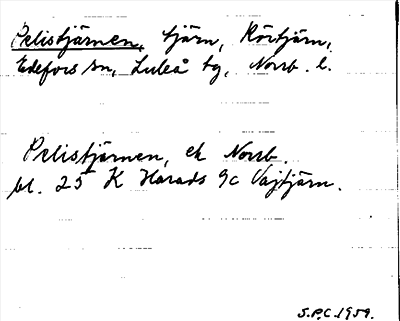 Pelistjärnen, tjärn, Körtjärn,
Edefors sn, Luleå tg, Norrb. l.
Pelistjärnen, ek Norrb.
bl. 25 K Harads 9c Vajtjärn.
S.P.C. 1959.